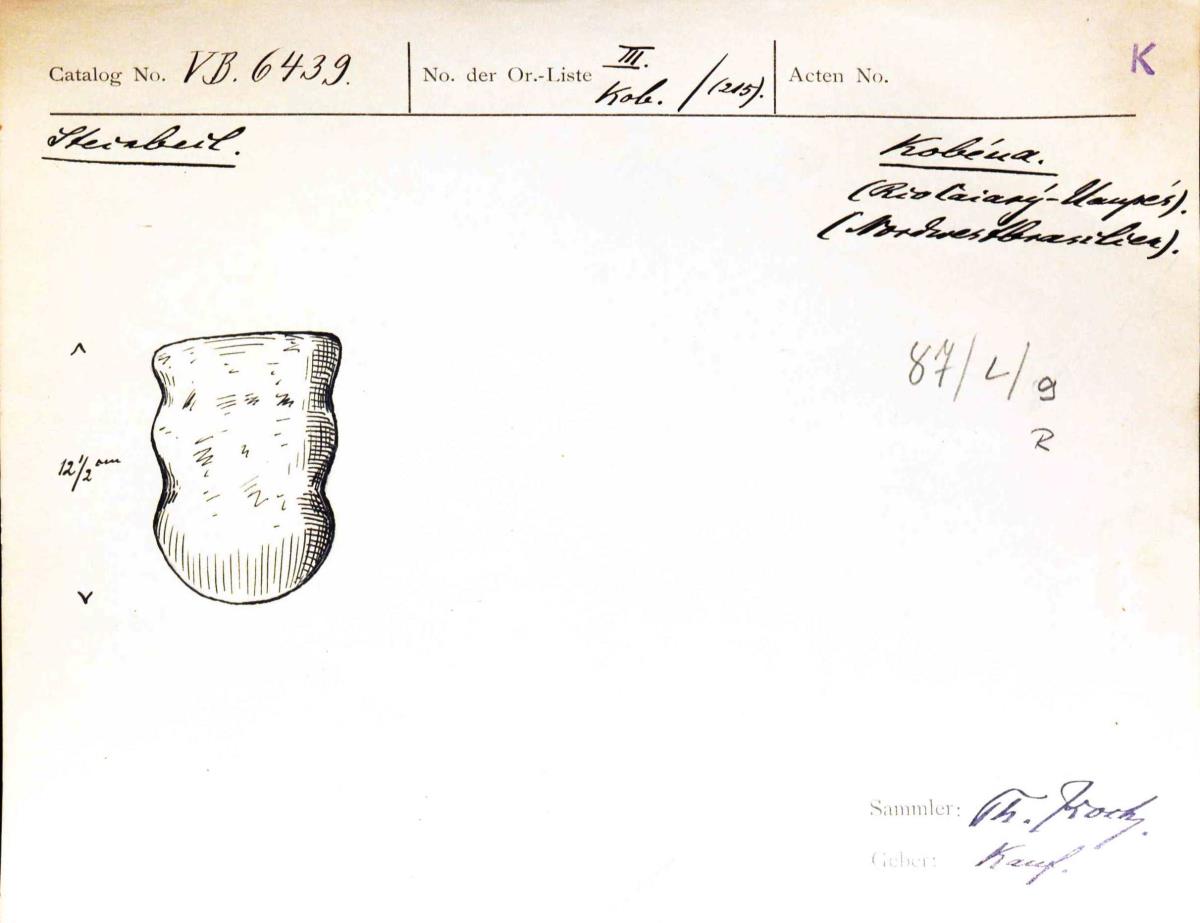 Catalog No. VB. 6439. No. der Or.-Liste III. Kob. / (215). Acten No. K
Steinbeil.
Kobéua.
(Rio Caiarý-Uaupés).
(Nordwestbrasilien).
87/L/9
R
12 1/2 cm
Sammler: Th. Koch.
Geber: Kauf.